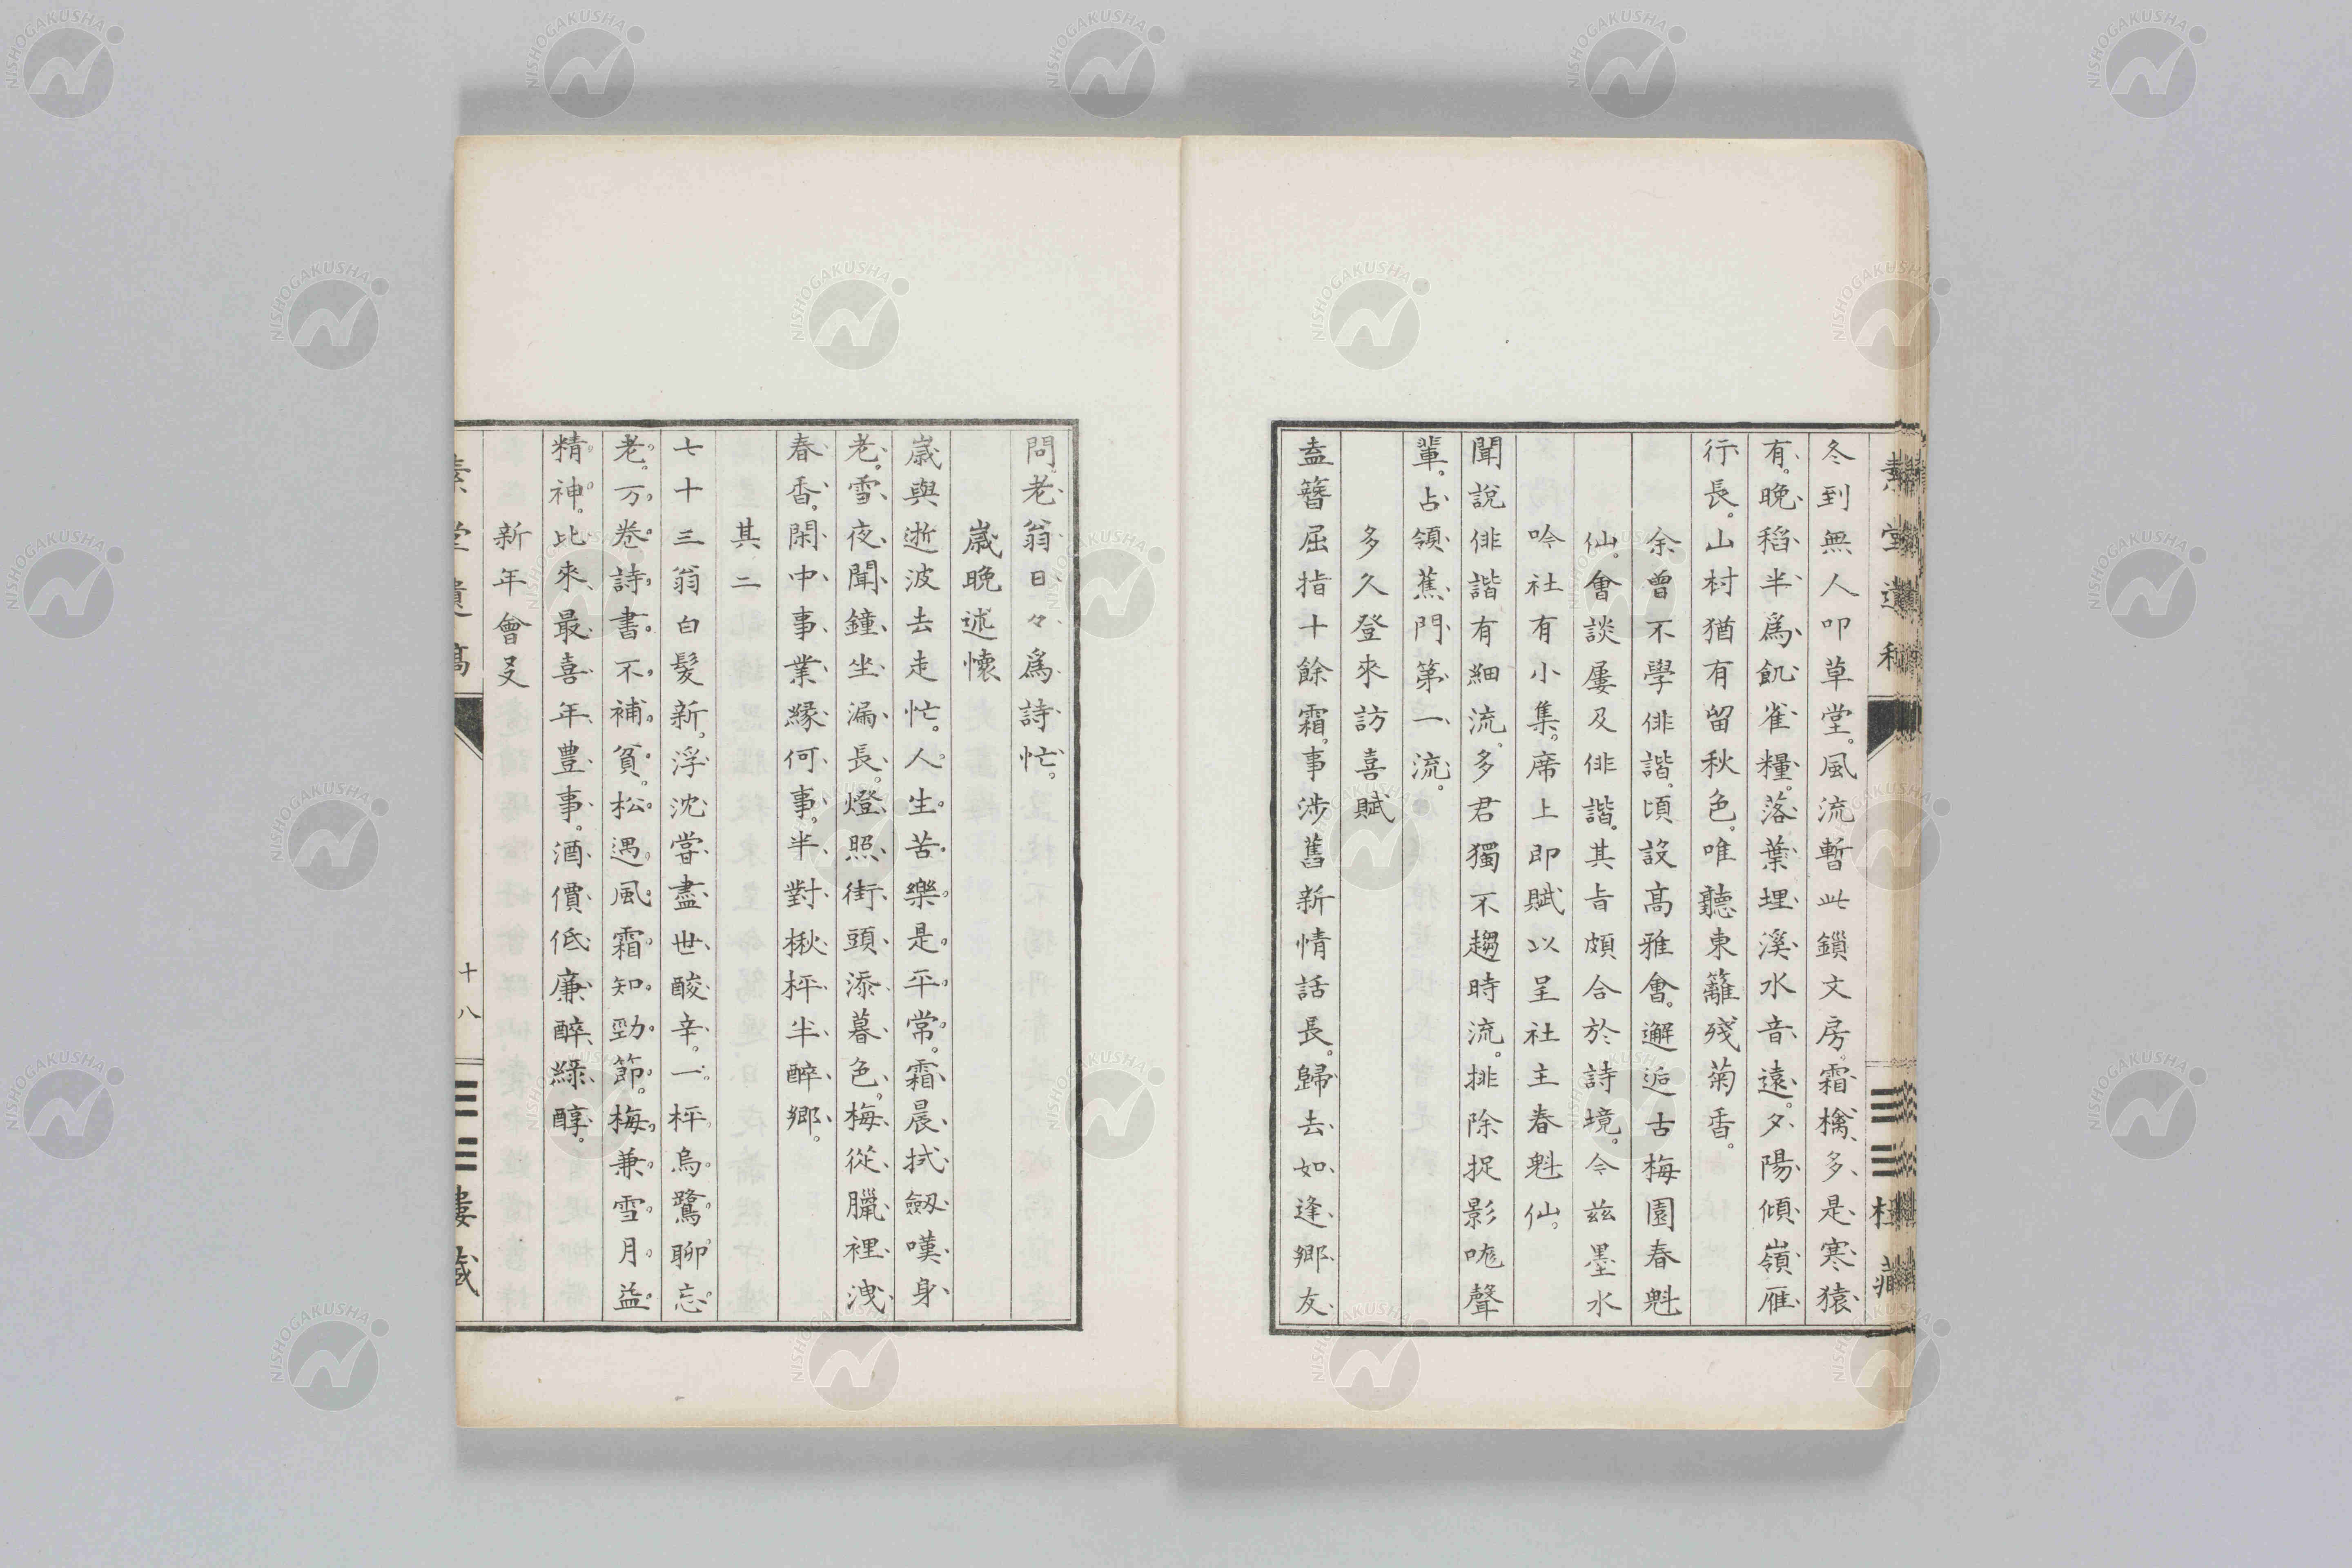 冬到無人叩草堂。風流暫此鎖文房。霜檎多是寒猿
有。晩稻半爲飢雀糧。落葉埋溪水音遠。夕陽傾嶺雁
行長。山村猶有留秋色。唯聽東籬殘菊香。
余曾不學俳諧。頃設高雅會。邂逅古梅園春魁
仙。會談屢及俳諧。其旨頗合於詩境。今茲墨水
吟社有小集。席上即賦以呈社主春魁仙。
聞說俳諧有細流。多君獨不趨時流。排除捉影吠聲
輩。占領蕉門第一流。
多久登來訪喜賦
盍簪屈指十餘霜。事涉舊新情話長。歸去如逢鄉友
問。老翁日々爲詩忙。
歲晩述懷
歲與逝波去走忙。人生苦樂是平常。霜晨拭劔嘆身
老。雪夜聞鐘坐漏長。燈照街頭添暮色。梅從臘裡洩
春香。閑中事業緣何事。半對楸枰半醉鄉。
其二
七十三翁白髮新。浮沈嘗盡世酸辛。一枰烏鷺聊忘
老。万卷詩書不補貧。松遇風霜知勁節。梅兼雪月益
精神。比來最喜年豊事。酒價低廉醉綠醇。
新年會叉
素堂遺稿
十八
三三樓藏
NISHOGAKUSHA